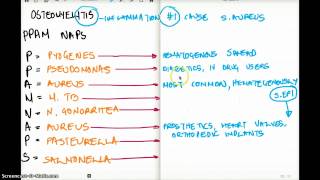 OSTEOMYELITIS - INFLAMMATION #1 CAUSE S. AUREUS
PPAM NAPS
P = PYOGENES → HEMATOGENOUS SPREAD
P = PSEUDOMONAS → DIABETICS, IV DRUG USERS
A = AUREUS → MOST COMMON, HEMATOGENOUSLY
M = M. TB
S. EPI
N = N. GONORRHEA
A = AUREUS → PROSTHETICS, HEART VALVES,
ORTHOPEDIC IMPLANTS
P = PASTEURELLA
S = SALMONELLA
Screencast-O-Matic.com